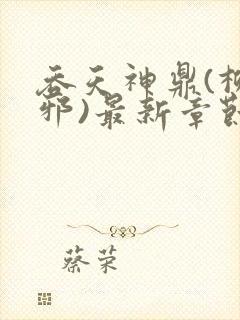 吞天神鼎(
邪)最新章節
蔡荣